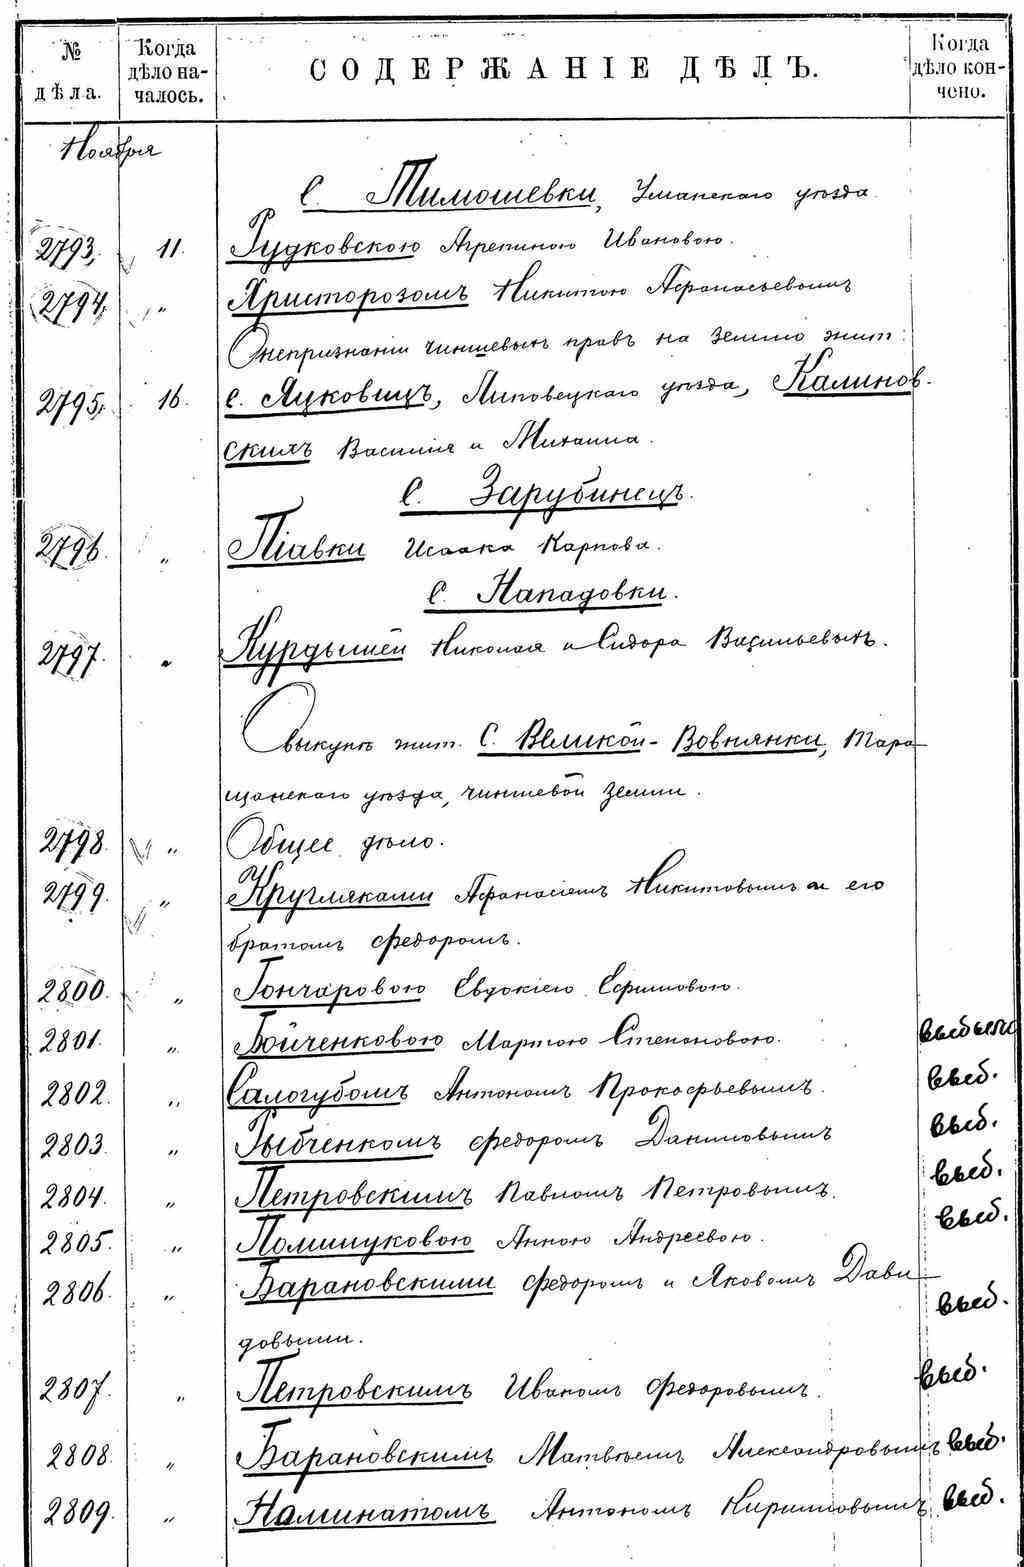 № дѣла. Когда дѣло началось. СОДЕРЖАНІЕ ДѢЛЪ. Когда дѣло кончено.
Ноября
С. Тимошевки, Уманскаго уѣзда.
2793. 11. Рудковскою Агрепиною Ивановою.
2794. " Христорозомъ Никитою Афанасьевымъ
О непризнаніи чиншевыхъ правъ на землю жит:
2795. 16. с. Яцковицъ, Липовецкаго уѣзда, Калинов-
скихъ Василія и Михаила.
С. Зарубинецъ.
2796. " Піавки Исаака Карпова.
С. Нападовки.
2797. " Курдышей Николая и Сидора Васильевыхъ.
О выкупѣ жит. С. Великой-Вовнянки, Тара-
щанскаго уѣзда, чиншевой земли.
2798. " Общее дѣло.
2799. " Кругляками Афанасіемъ Никитовымъ и его
братомъ Федоромъ.
2800. " Гончаровою Евдокіею Ефимовою.
2801. " Бойченковою Мартою Степановою.
2802. " Салогубомъ Антономъ Прокофьевымъ. выб.
2803. " Рыбченкомъ Федоромъ Даниловымъ выб.
2804. " Петровскимъ Павломъ Петровымъ. выб.
2805. " Поминуковою Анною Андреевою. выб.
2806. " Барановскими Федоромъ и Яковомъ Дави-
довыми. выб.
2807. " Петровскимъ Иваномъ Федоровымъ. выб.
2808. " Барановскимъ Матвѣемъ Александровымъ выб.
2809. " Наминатомъ Антономъ Кирилловымъ. выб.